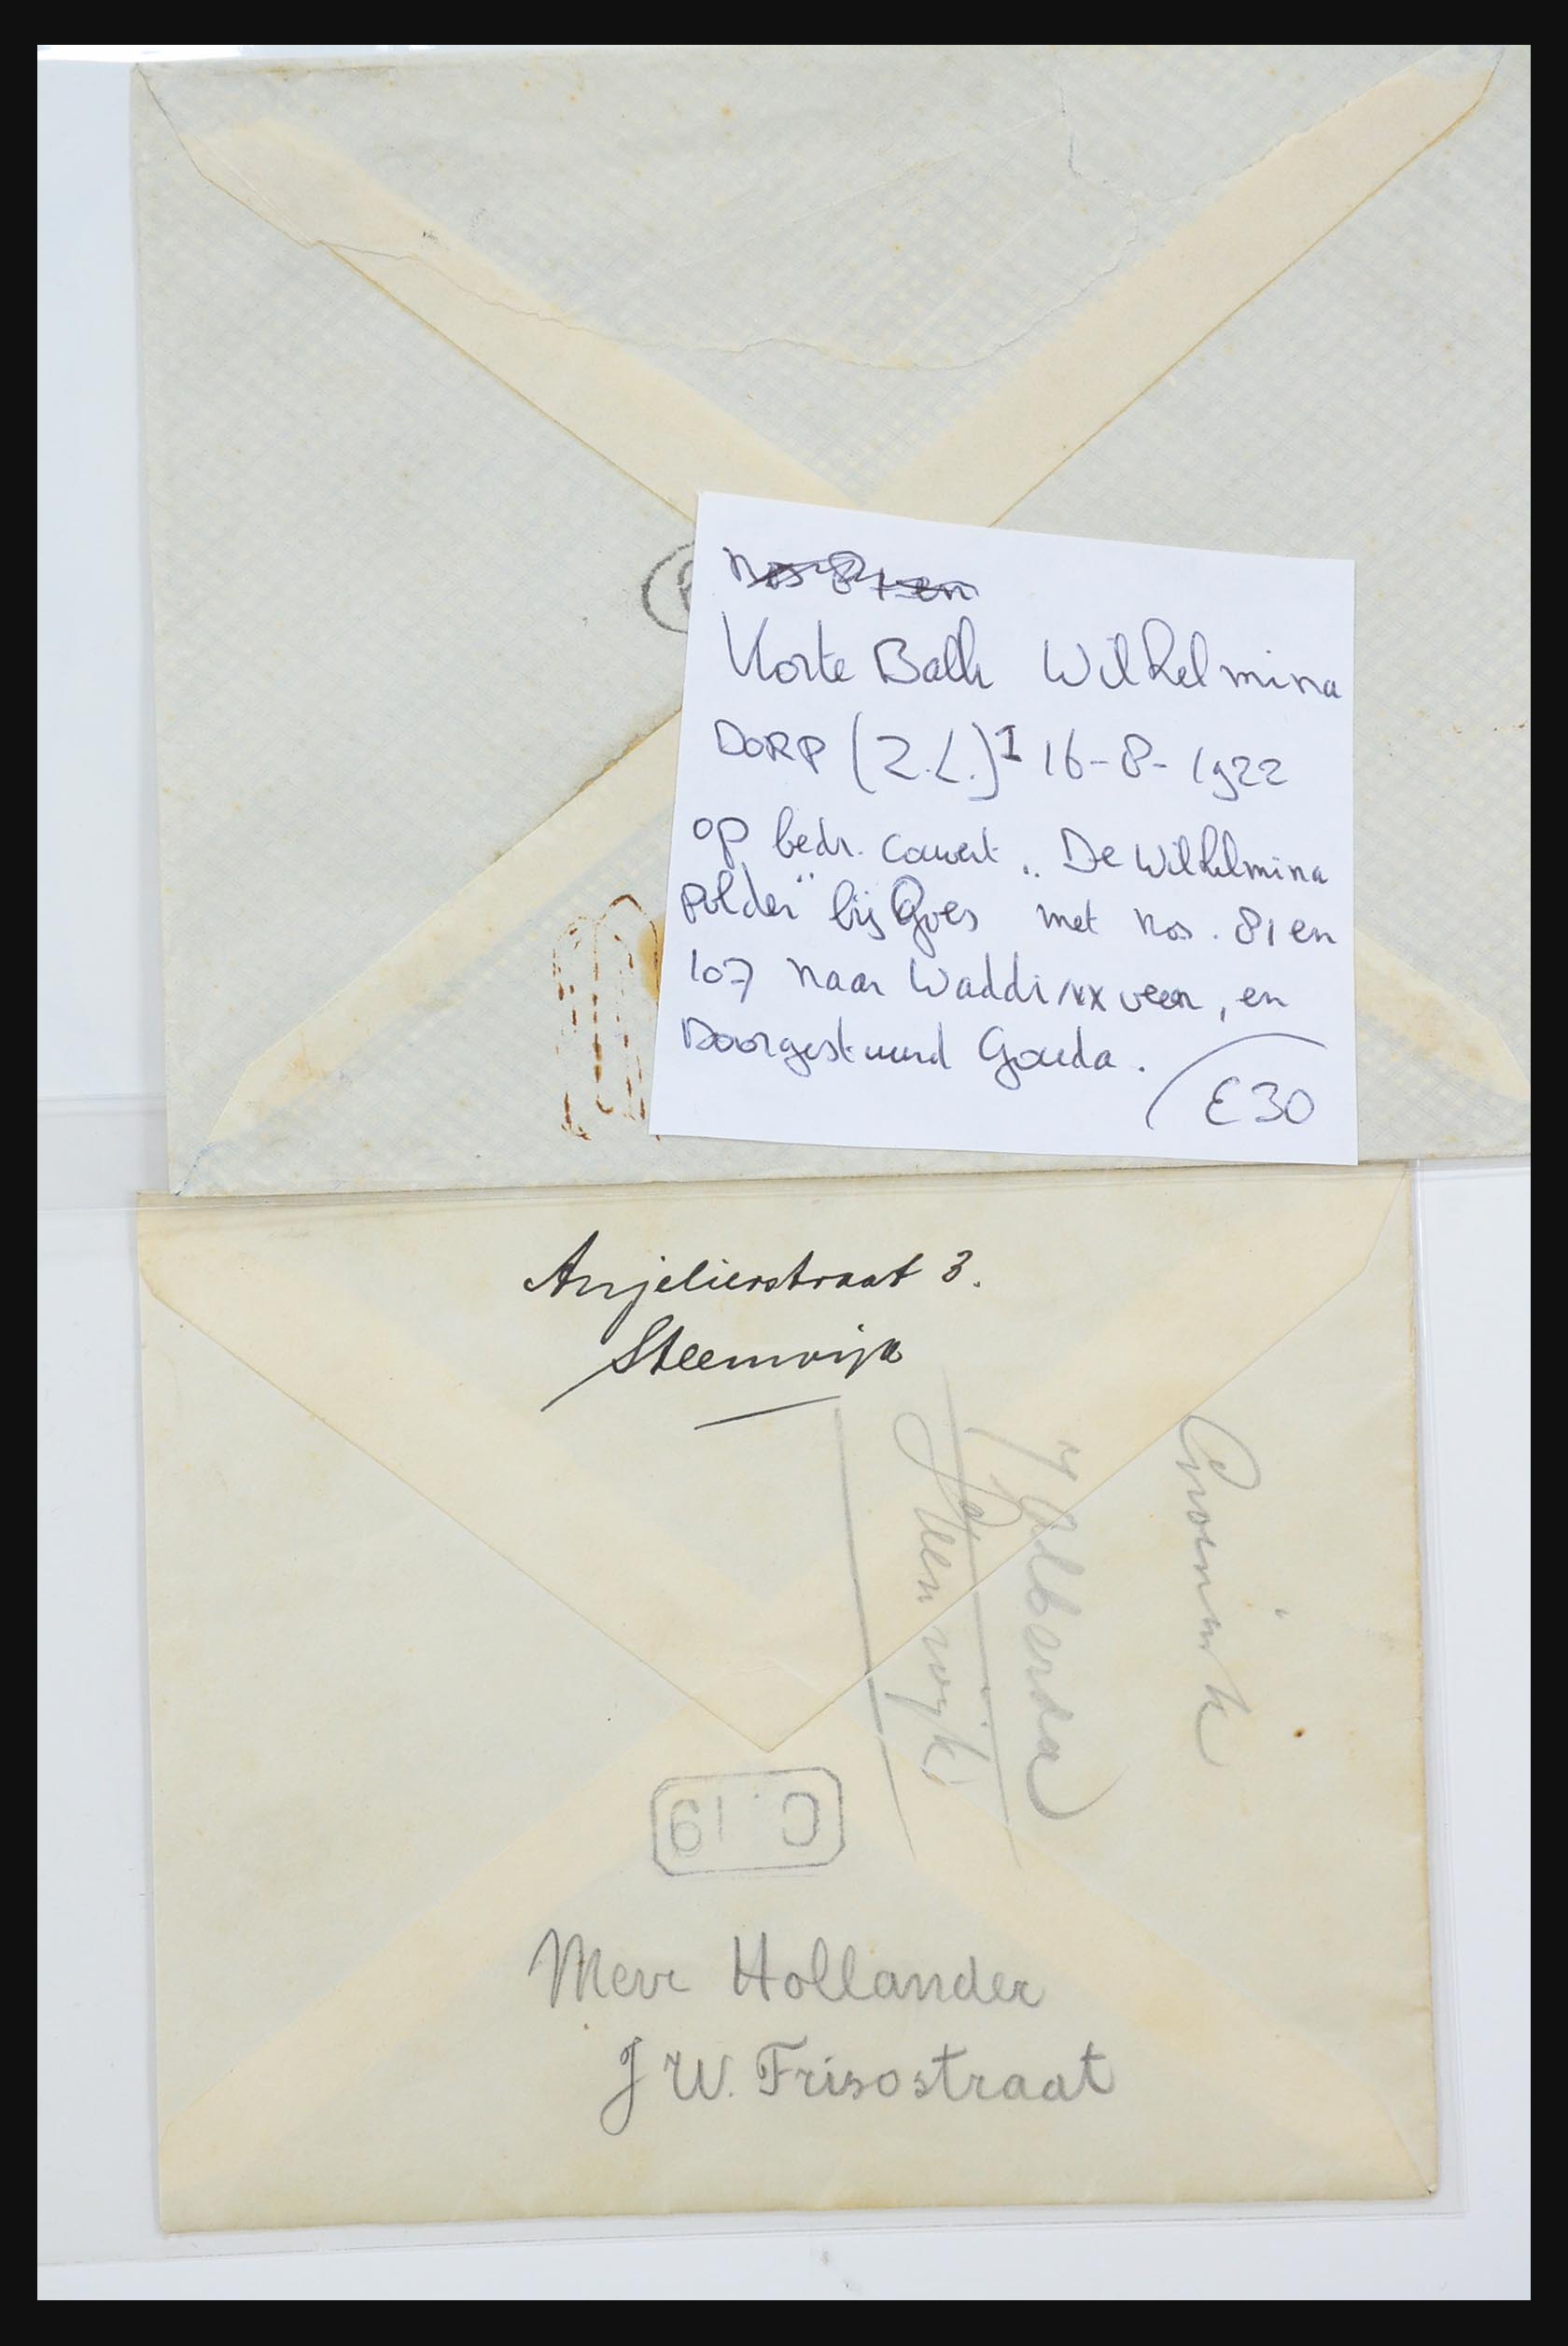 Nos 81 en
Korte Balk Wilhelmina
DORP (Z.L.) I 16-8-1922
op bedr. couvert „De Wilhelmina
polder" bij Goes met nos. 81 en
107 naar Waddinxveen, en
Doorgestuurd Gouda.
€30
Anjelierstraat 3.
Steenwijk
Alberda
Steenwijk
C. 19
Mevr Hollander
J W. Frisostraat